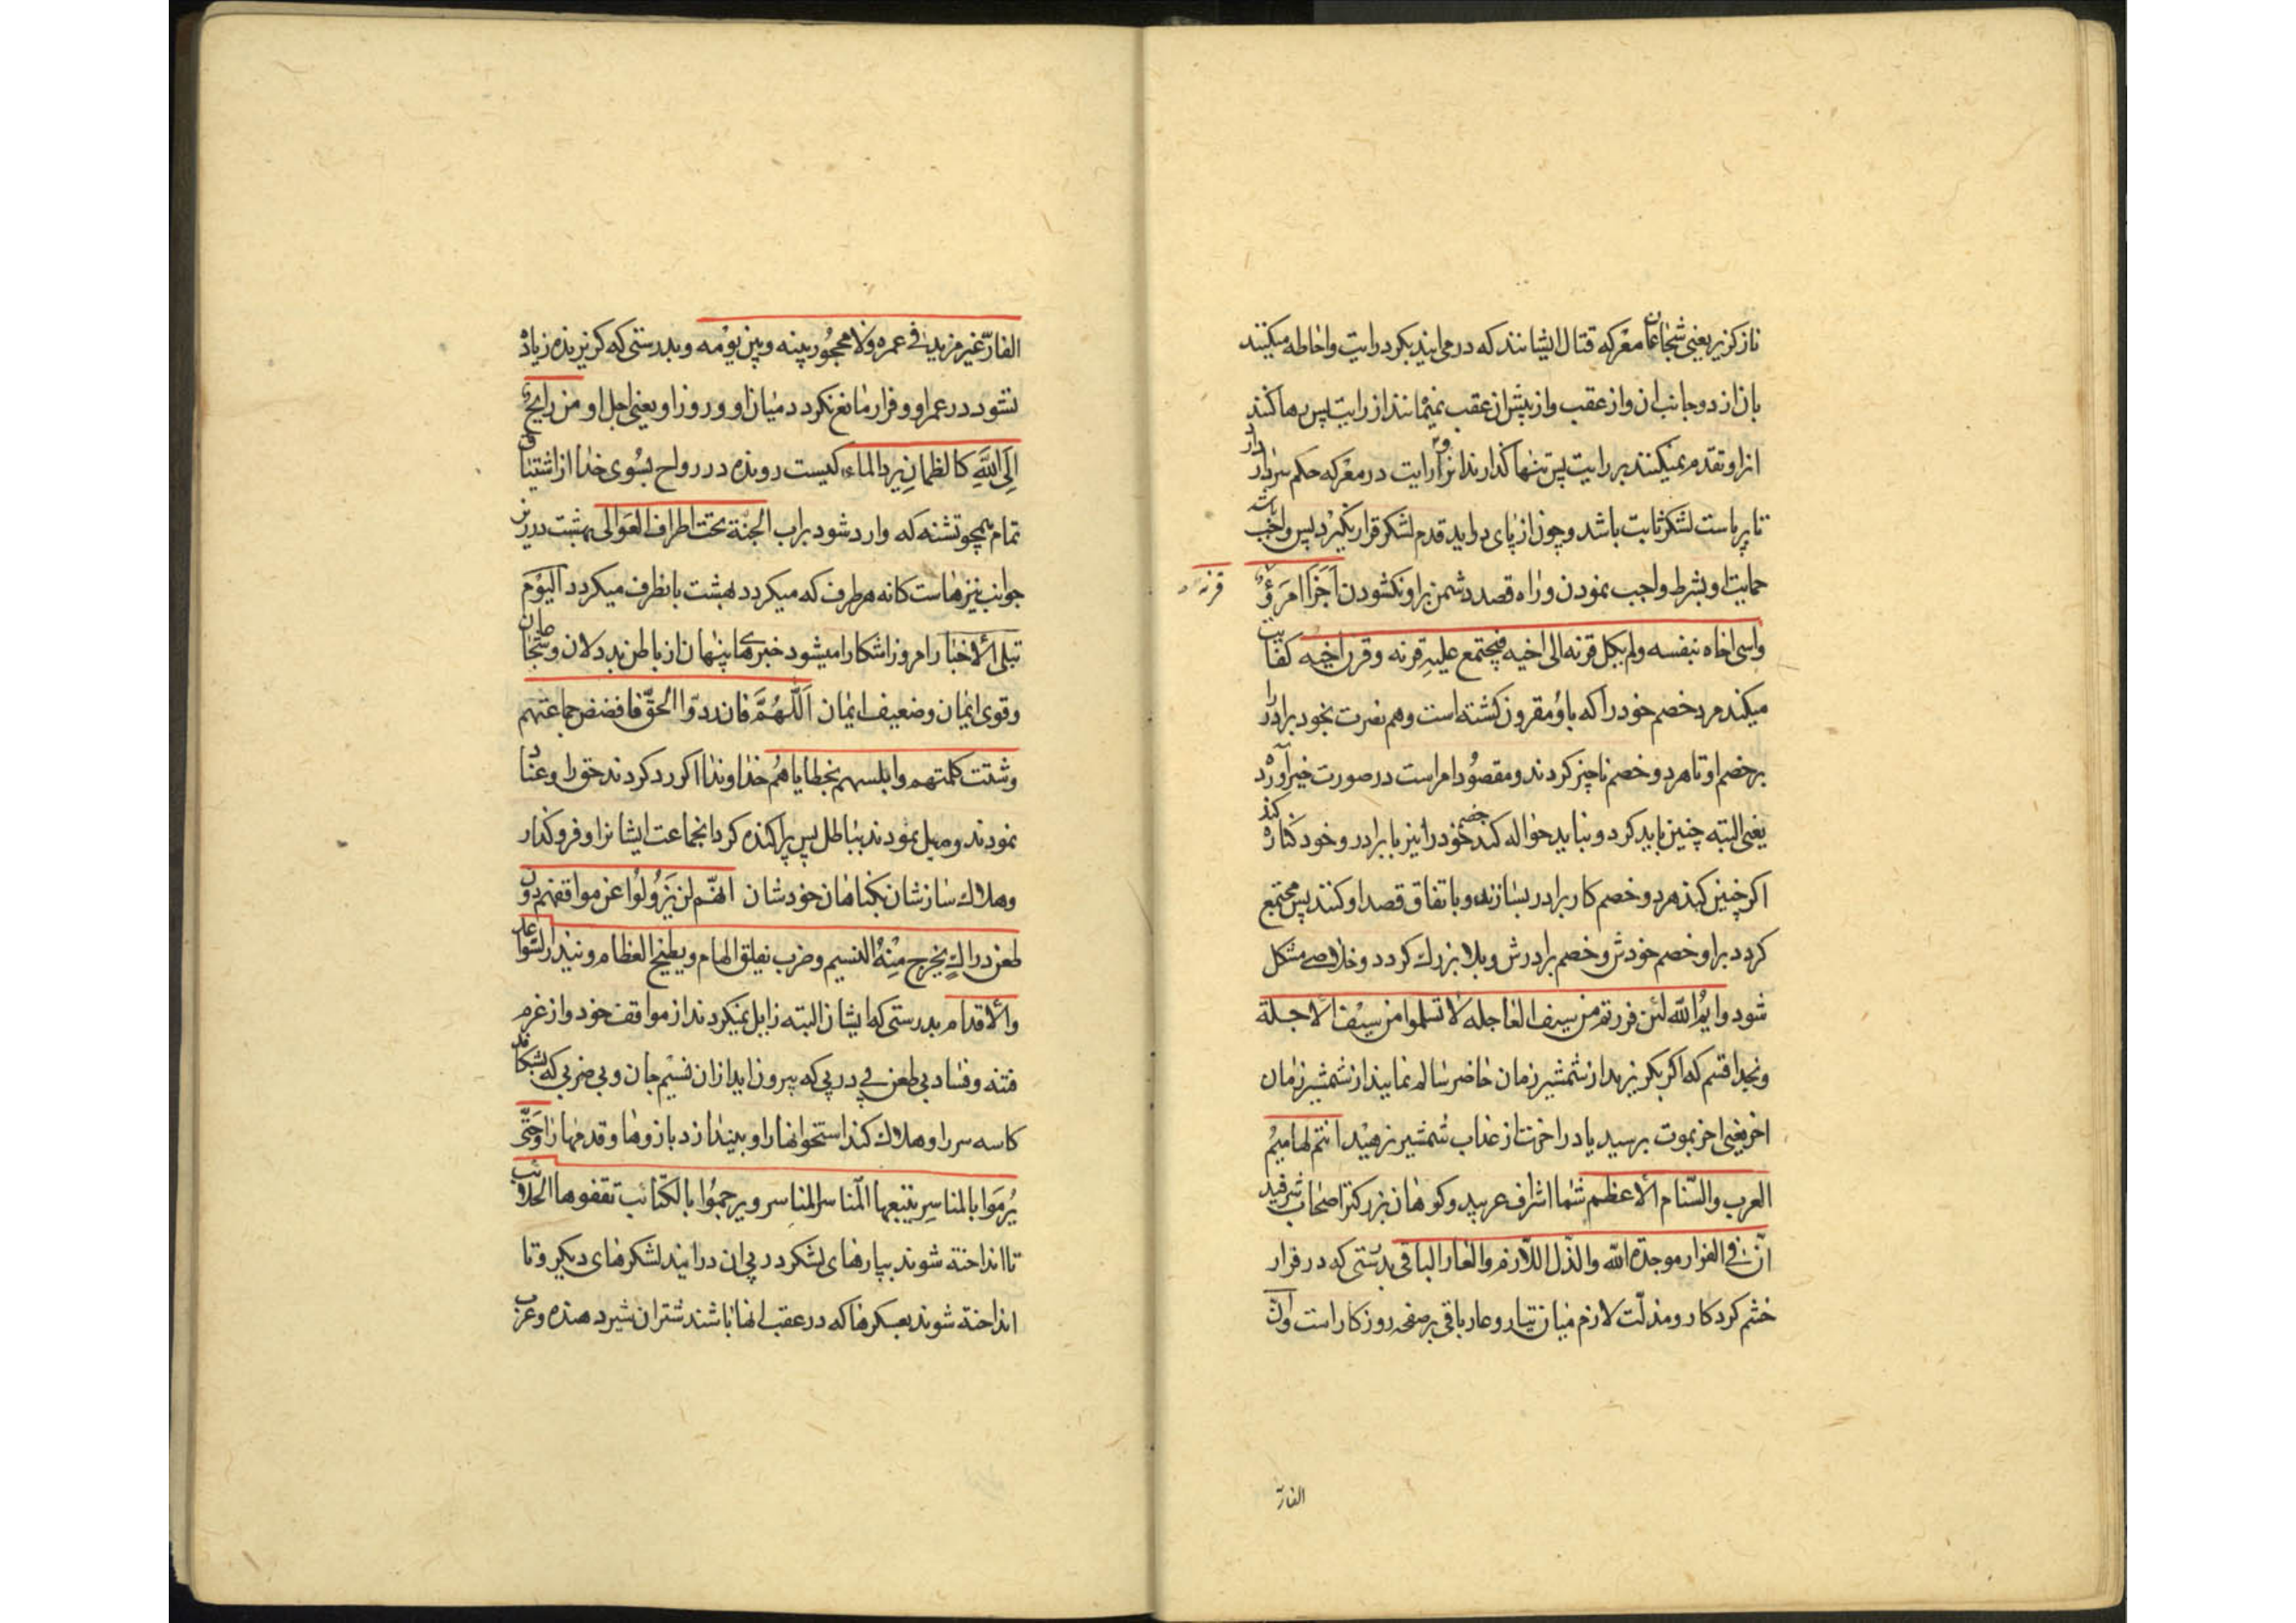 ناز کزیر یعنی شجاعان معرکه قتال ایشانند که در می ایند بکرد رایت واحاطه میکنند
بان از دو جانب ان و از عقب و از پیش از عقب نمیمانند از رایت پس رها کنند
انرا و تقدم نمیکنند بر رایت پس تنها گذارند انرا و رایت در معرکه حکم سردار دارد
تا برپاست لشکر ثابت باشد و چون از پای در اید قدم لشکر قرار نگیرد پس واجب باشد
حمایت او بشرط واجب نمودن و راه قصد دشمن براو نکشودن اَجْزَأَ امرَؤٌ قرنه
واسی اخاه بنفسه ولم یکل قرنه الی اخیه فیجتمع علیهِ قرنه و قرن اخیه کفایت
میکند مرد خصم خود را که باو مقرون کشته است و هم نصرت بخود برادر را
بر خصم او تا هر دو خصم ناچیز کردند و مقصود امر است در صورت خبر آورده
یعنی البته چنین باید کرد و نباید حواله کند خصم خود را نیز با برادر و خود کناره کند
اکر چنین کند هر دو خصم کار برادر بسازند و باتفاق قصد او کنند پس مجتمع
کردد براو خصم خودش و خصم برادرش و بلا بزرك کردد و خلاصی مشکل
شود وایْمُ الله لئن فررتم من سیف العاجله لا تسلموا من سیف الاجلة
وبخدا قسم که اکر بکریزید از شمشیر زمان حاضر سالم نمایند از شمشیر زمان
اخر یعنی اخر بموت برسید یا در اخرت از عذاب شمشیر نرهید انتم لهامیم
العرب والسّنام الاعظم شما اشراف عربید و کوهان بزرکتر اصحاب شرفید
انّ فی الفرار موجدة الله والذّل اللّازم والعار الباقی بدرستی که در فرار
خشم کردکار و مذلّت لازم میان تبار و عار باقی بر صفحه روزکار است وانّ
الفارّ
الفارّ غیر مزید فی عمره ولا محجُور بینه وبین یومه و بدرستی که کریزنده زیاده
نشود در عمر او و فرار مانع نکردد میان او و روز او یعنی اجل او من رایحٌ
اِلَی اللّهِ کالظمانِ یرد الماء کیست رونده در رواح بسوی خدا از اشتیاق
تمام همچو تشنه که وارد شود براب الجنة تحت اطراف العَوالی بهشت در زیر
جوانب نیزهاست کانه هر طرف که میکردد بهشت بانطرف میکردد الیوْم
تبلی الاخبار امروز اشکارا میشود خبرهای پنهان از باطن بددلان و شجاعان
وقوی ایمان و ضعیف ایمان اَللّهُمَّ فان ردّوا الحقّ فافضض جماعتهم
وشتت کلمتهم وابلسهم بخطایاهُم خداوندا اکر رد کردند حق را و عناد
نمودند و میل نمودند بباطل پس پراکنده کردان جماعت ایشانرا و فروکذار
وهلاك سازشان بکناهان خودشان انّهم لن یَزُولُوا عن مواقفهم دون
طعن دراكٍ یخرج مِنْهُ النسیم وضرب یفلق الهام ویطیح العظام ویندر السّواعد
والاقدام بدرستی که ایشان البته زایل نمیکردند از مواقف خود و از عزم
فتنه و فساد بی طعن پی در پی که بیرون اید ازان نسیم جان و بی ضربی که بشکافد
کاسه سر را و هلاك کند استخوانها را و بیندازد بازوها و قدمها را وحَتّی
یُرمَوا بالمناسِر یتبعها المناسر ویرجموُا بالکتائب تقفوها الحلائب
تا انداخته شوند بپارهای لشکر در پی ان درایند لشکرهای دیکر و تا
انداخته شوند بعسکرها که در عقب انها باشند شتران شیردهنده وعزب